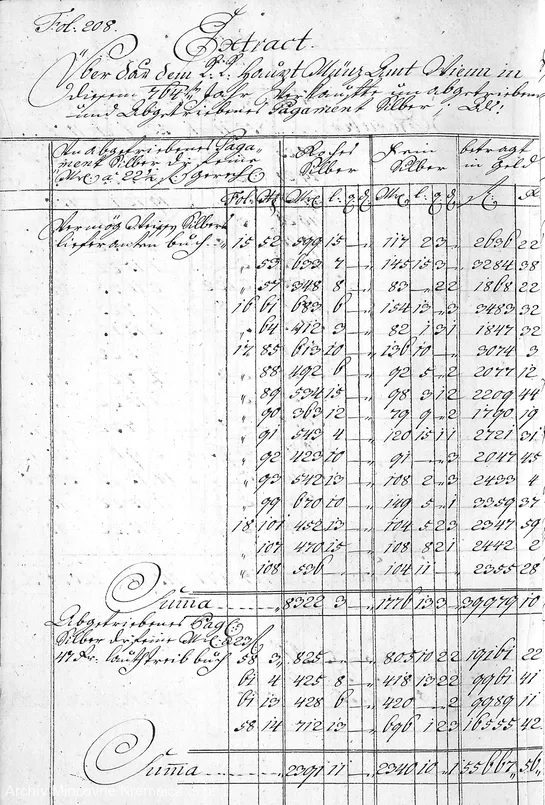 Fol: 208.
Extract.
Über das dem K. K. Haupt Münz Amt Wienn in
diesem 764ten Jahr verkauffte unabgetriebene
und Abgetriebenes Pagament Silber; Als:
Unabgetriebenes Paga- Rohes Fein betragt
ment Silber die feine Silber Silber in Geld
Mrk à 22½ f. gerech
Fol: Mrk l: q d Mrk l: q d f: x
Vermög
lieferanten buch 15 52 599 15 117 2 3 2636 22
53 633 7 145 15 3 3284 38
57 348 8 83 2 2 1868 22
16 61 683 6 154 13 3 3483 32
64 412 3 82 1 3 1 1847 32
17 85 613 10 136 10 3074 3
88 492 6 92 5 2 2077 12
89 534 15 98 3 1 2 2209 44
90 363 12 79 9 2 1790 19
91 543 4 120 15 1 1 2721 31
92 423 10 91 3 2047 45
93 542 13 108 2 3 2433 4
99 670 10 149 5 1 3359 37
18 101 452 13 104 5 2 3 2347 59
107 470 15 108 8 2 1 2442 2
108 536 104 11 2355 28
Suma 8322 3 1776 13 3 39979 10
Abgetriebenes Pag:
Silber die feine Mrk à 23 f
47 xr. buch 58 3 825 805 10 2 2 19161 22
61 4 425 8 418 13 2 2 9961 41
61 13 428 6 420 2 9989 11
58 14 712 13 696 1 2 3 16555 42
Suma 2391 11 2340 10 1 55667 56